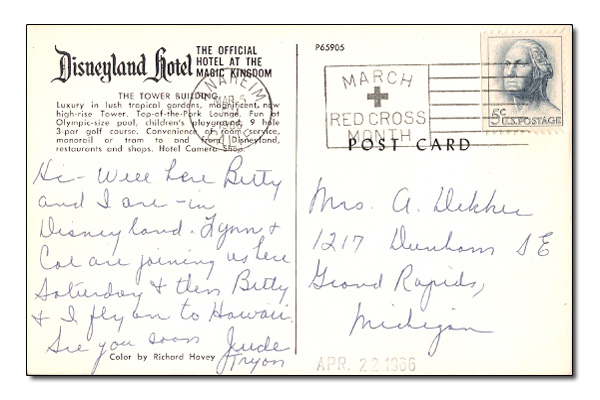 Disneyland Hotel
THE OFFICIAL
HOTEL AT THE
MAGIC KINGDOM
THE TOWER BUILDING
Luxury in lush tropical gardens, magnificent new
high-rise Tower. Top-of-the-Park Lounge. Fun at
Olympic-size pool, children's playground, 9 hole
3-par golf course. Convenience of room service,
monorail or tram to and from Disneyland,
restaurants and shops. Hotel Camera Shop.
Hi - Well here Betty
and I are - in
Disneyland. Lynn &
are joining us here
Saturday & then Betty
& I fly on to Hawaii.
See you soon
Jude
Tryon
Color by Richard Hovey
P65905
ANAHEIM
MAR
MARCH
RED CROSS
MONTH
5¢ U.S. POSTAGE
POST CARD
Mrs. A. Dekker
1217 Dunham SE
Grand Rapids,
Michigan
APR. 22 1966